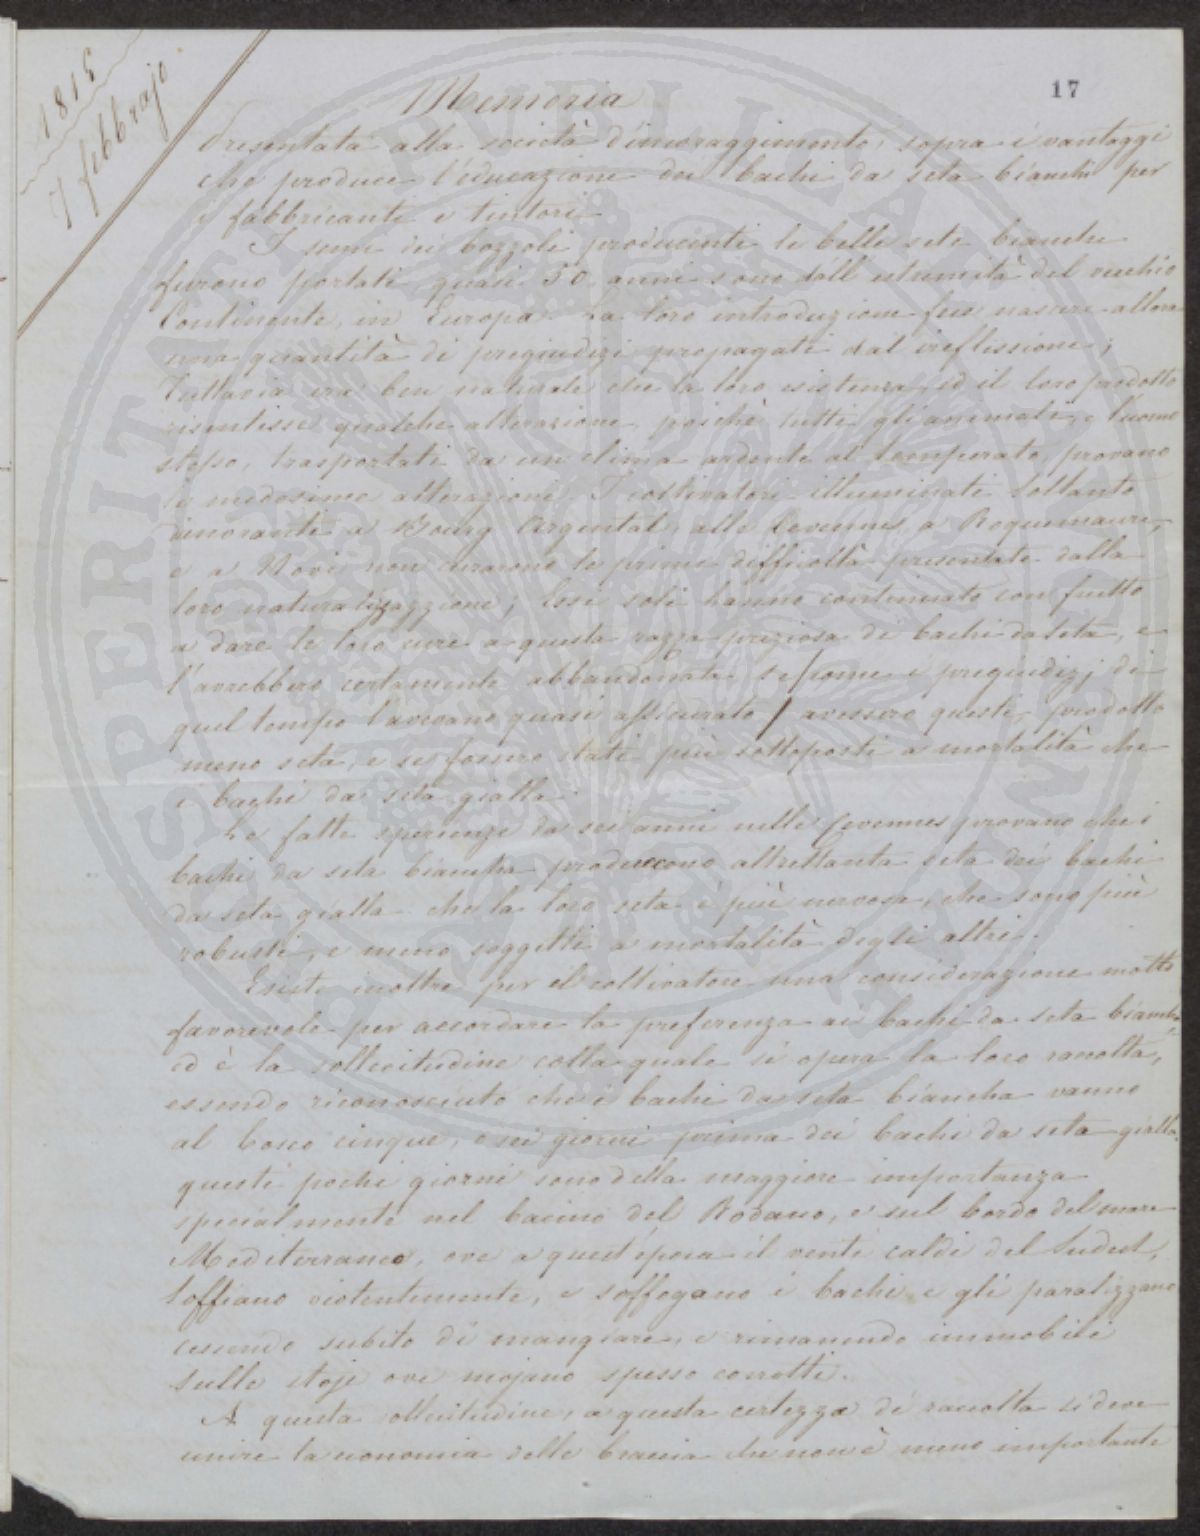 1815
7 febbrajo
17
Memoria
Presentata alla società d'incoraggimento, sopra i vantaggi
che produce l'educazione dei bachi da seta bianchi per
i fabbricanti e tintori
I semi dei bozzoli producenti le belle sete bianche
furono portati quasi 50 anni sono dall'estremità del vecchio
Continente, in Europa. La loro introduzione fece nascere allora
una quantità di pregiudizi propagati dal
Tuttavia era ben naturale che la loro esistenza, ed il loro prodotto
risentisse qualche alterazione, poichè tutti gli animali, e l'uomo
stesso, trasportati da un clima ardente al temperato, provano
le medesime alterazioni. I coltivatori illuminati soltanto
dimoranti a Bourg Argental, alle Cevennes, a Roquemaure,
e a Novi non curarono le prime difficoltà presentate dalla
loro naturalizzazzione; Essi soli hanno continuato con frutto
a dare le loro cure a questa razza preziosa di bachi da seta, e
l'avrebbero certamente abbandonata se, come i pregiudizj di
quel tempo l'avevano quasi assicurato / avessero questi, prodotto
meno seta, e se fossero stati più sottoposti a mortalità che
i bachi da seta gialla.
Le fatte sperienze da sei anni nelle Cevennes provano che i
bachi da seta biancha producono altrettanta seta dei bachi
da seta gialla che la loro seta è più nervosa, che sono più
robusti, e meno soggetti a mortalità degli altri.
Esiste inoltre per il coltivatore una considerazione molto
favorevole per accordare la preferenza ai bachi da seta biancha
ed è la sollecitudine colla quale si opera la loro raccolta,
essendo riconosciuto che i bachi da seta biancha vanno
al bosco cinque, o sei giorni prima dei bachi da seta gialla.
questi pochi giorni sono della maggiore importanza
specialmente nel bacino del Rodano, e sul bordo del mare
Mediterraneo, ove a quest'epoca il venti caldi del Sudest,
soffiano violentemente, e soffogano i bachi e gli paralizzano
cessendo subito di mangiare, e rimanendo immobili
sulle stoje ove mojano spesso corrotti.
A questa sollecitudine, a questa certezza di raccolta si deve
unire la economia delle braccia che non è meno importante